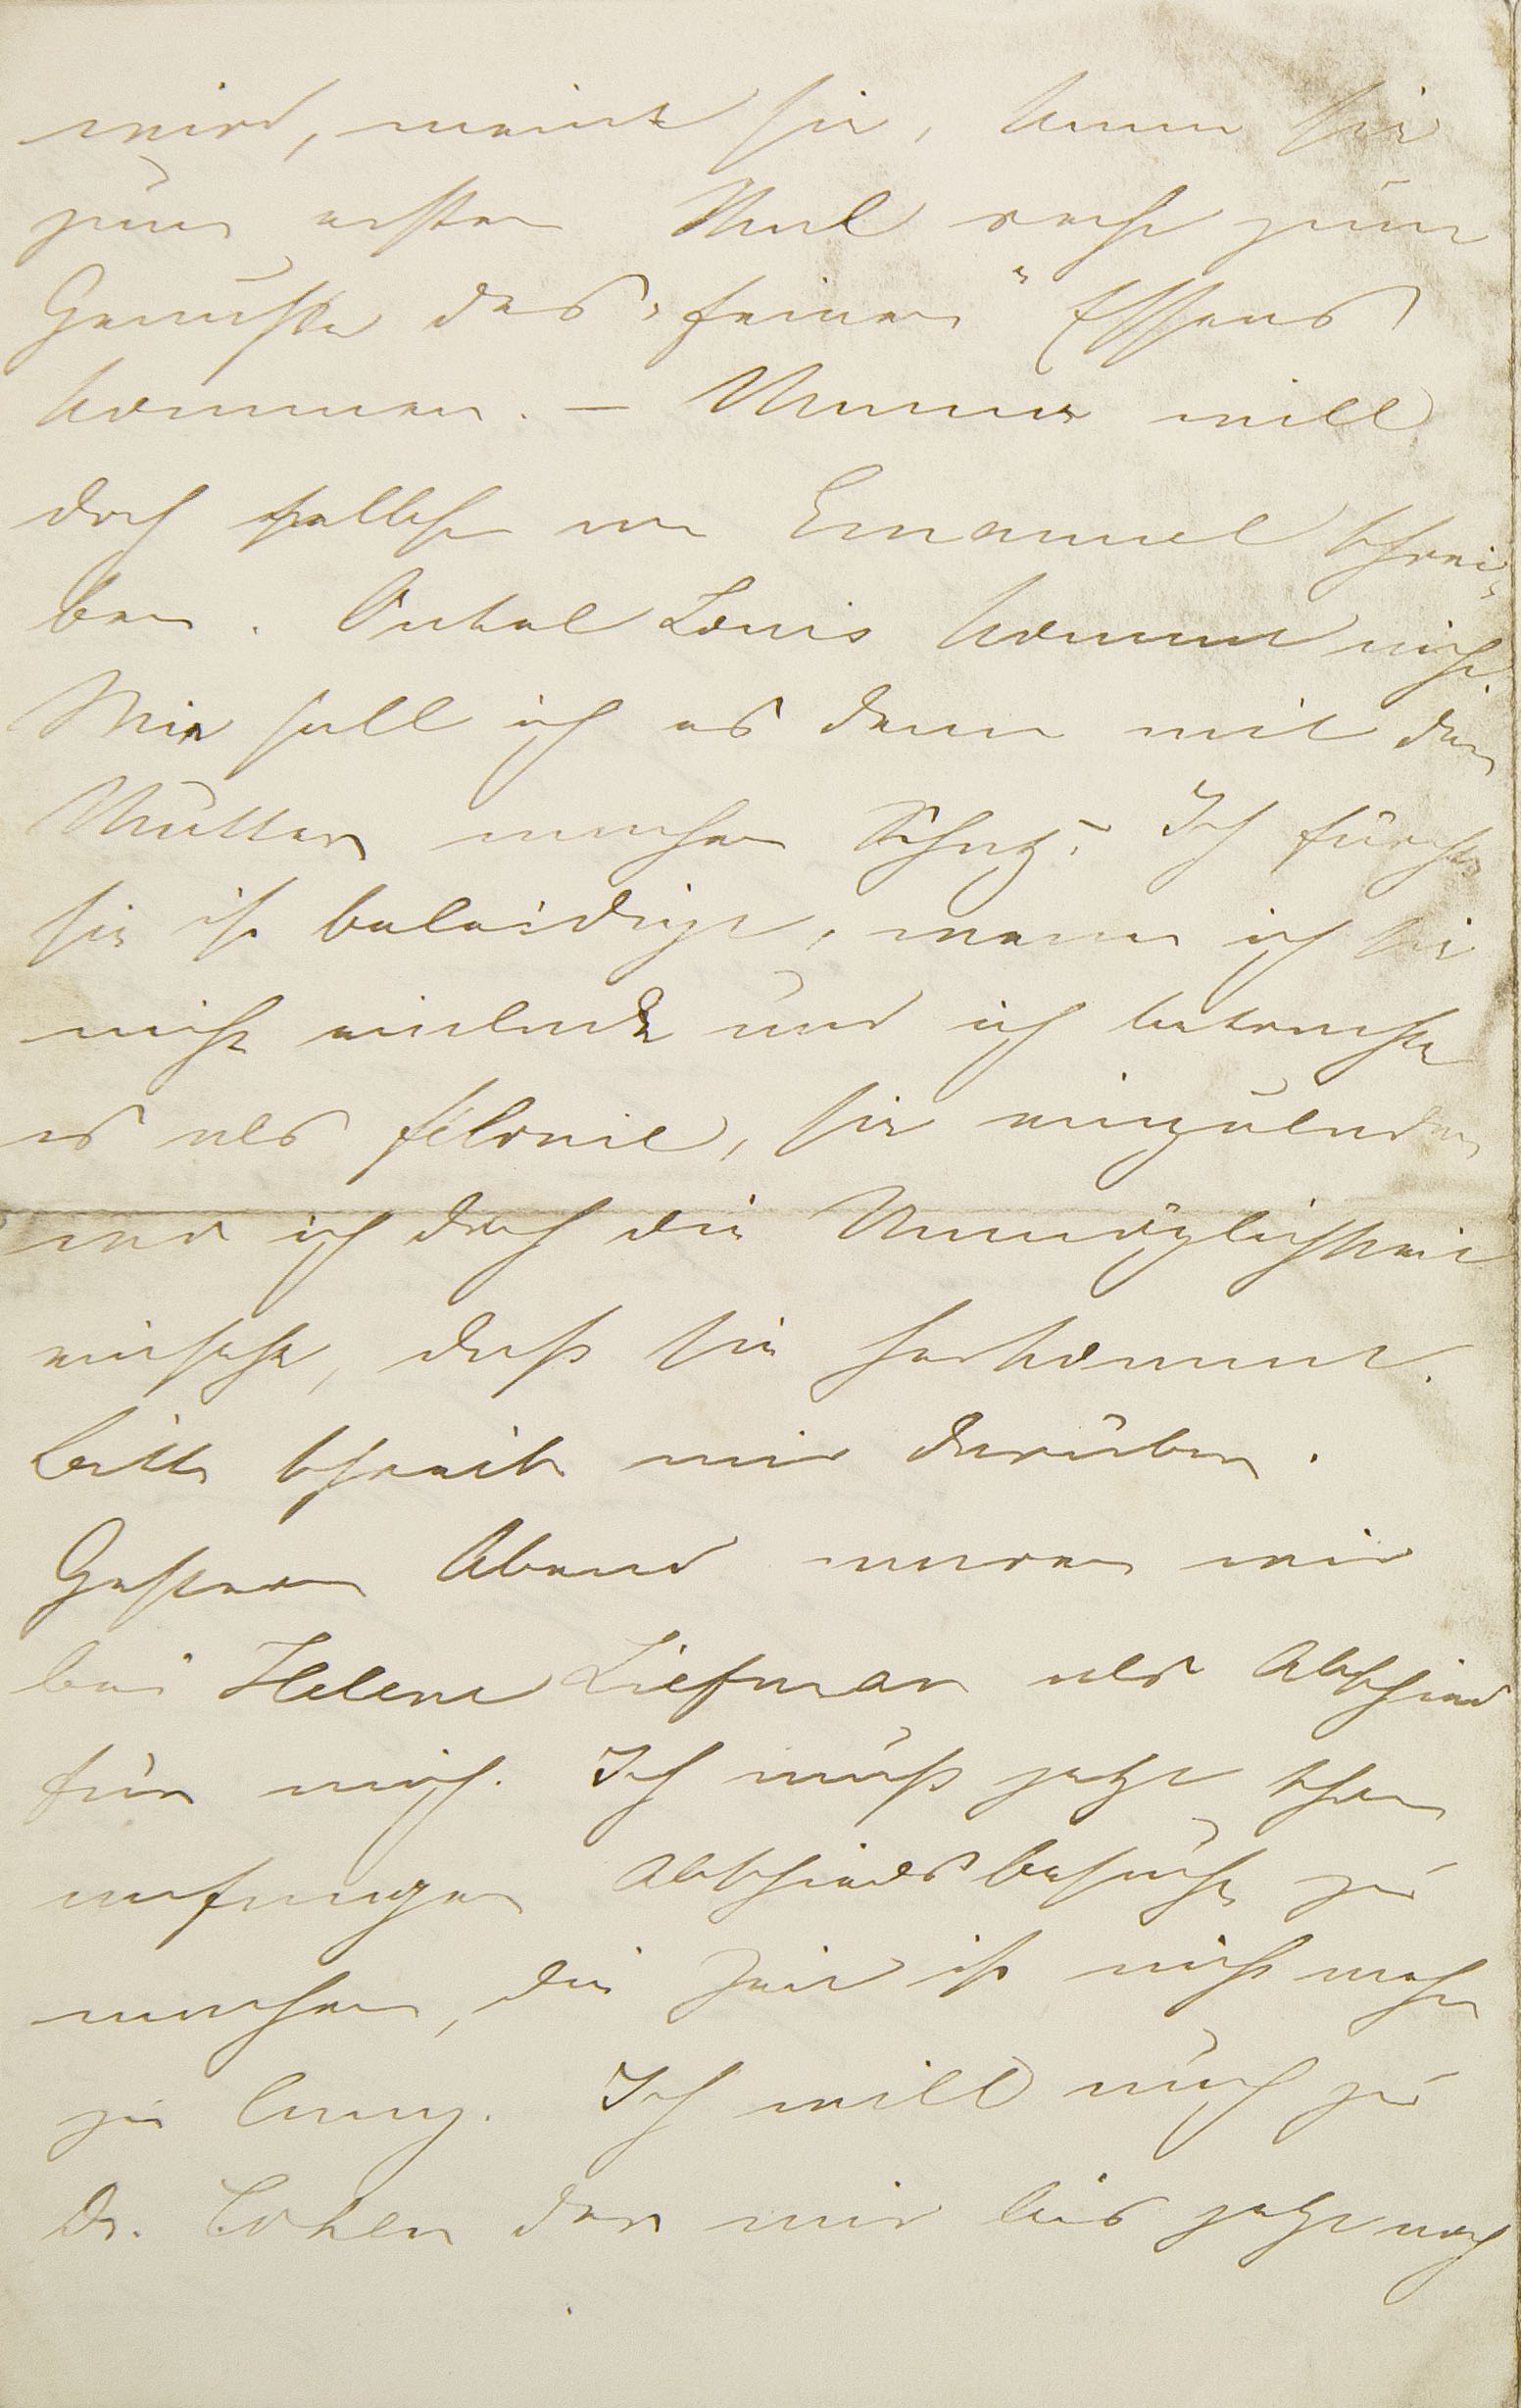 wird, meint sie, kann sie
zum ersten Mal recht zum
Genusse des „feinen“ Essens
kommen. – Mama will
doch selbst an Emanuel schrei-
ben. Onkel Louis kommt nicht.
Wie soll ich es denn mit den
Müttern machen Schatz? Ich fürchte
sie ist beleidigt, wenn ich sie
nicht einlade und ich betrachte
es als felonie, sie einzuladen
wo ich doch die Unmöglichkeit
einsehe, daß sie herkommt.
Bitte schreib mir darüber.
Gestern Abend waren wir
bei Helene Liefman als Abschied
für mich. Ich muß jetzt schon
anfangen Abschiedsbesuche zu
machen, die Zeit ist nicht mehr
zu lang. Ich will auch zu
Dr. Cohen der mir bis jetzt noch